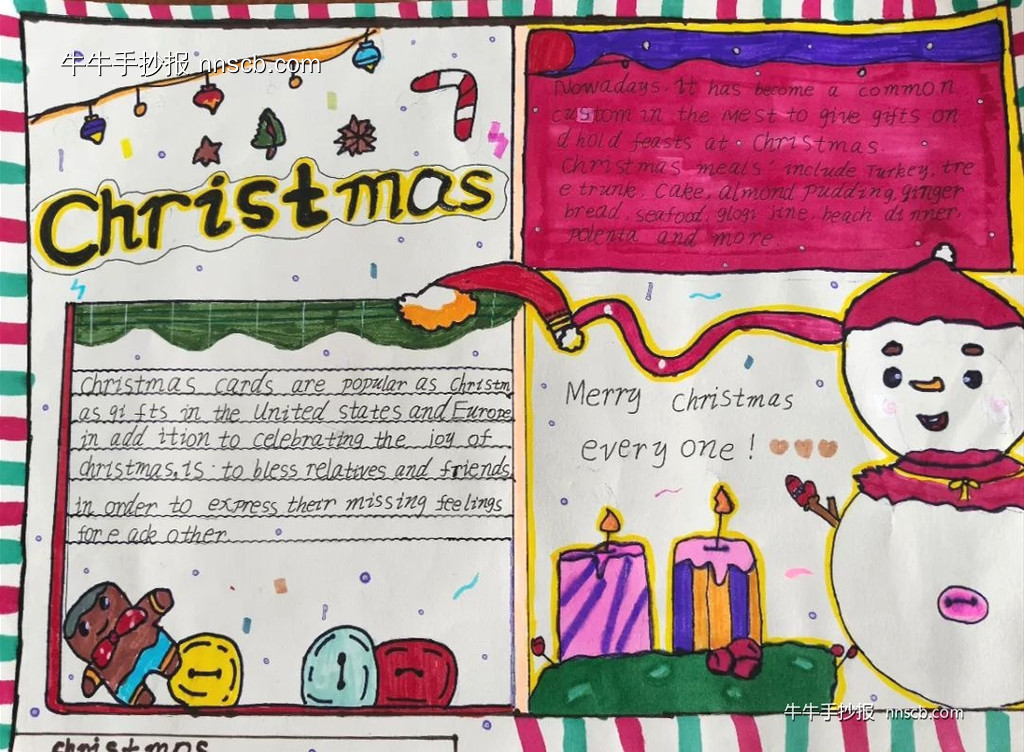 牛牛手抄报 nnscb.com
Christmas
Nowadays. it has become a common
custom in the Mest to give gifts on
d hold feasts at Christmas.
Christmas meals include Turkey, tre
e trunk. Cake, almond Pudding, ginger
bread, seafood, glogi Jine, beach dinner,
polenta and more.
christmas cards are popular as Christm
as gi fts in the United states and Europe
in add ition to celebrating the joy of
christmas, is to bless relatives and friends
in order to express their missing feelings
for e ach other.
Merry christmas
every one!
牛牛手抄报 nnscb.com
christmas